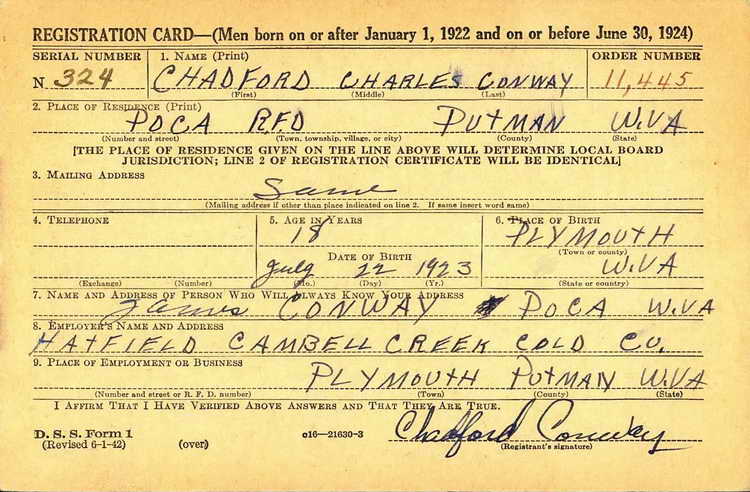 REGISTRATION CARD—(Men born on or after January 1, 1922 and on or before June 30, 1924)
SERIAL NUMBER 1. NAME (Print) ORDER NUMBER
N 324 CHADFORD CHARLES CONWAY 11,445
(First) (Middle) (Last)
2. PLACE OF RESIDENCE (Print)
POCA RFD PUTMAN W.VA
(Number and street) (Town, township, village, or city) (County) (State)
[THE PLACE OF RESIDENCE GIVEN ON THE LINE ABOVE WILL DETERMINE LOCAL BOARD
JURISDICTION; LINE 2 OF REGISTRATION CERTIFICATE WILL BE IDENTICAL]
3. MAILING ADDRESS
Same
(Mailing address if other than place indicated on line 2. If same insert word same)
4. TELEPHONE 5. AGE IN YEARS 6. PLACE OF BIRTH
18 PLYMOUTH
(Town or county)
DATE OF BIRTH
July 22 1923 W.VA
(Exchange) (Number) (Mo.) (Day) (Yr.) (State or country)
7. NAME AND ADDRESS OF PERSON WHO WILL ALWAYS KNOW YOUR ADDRESS
James CONWAY POCA W.VA
8. EMPLOYER'S NAME AND ADDRESS
HATFIELD CAMBELL CREEK COLD CO.
9. PLACE OF EMPLOYMENT OR BUSINESS
PLYMOUTH PUTMAN W.VA
(Number and street or R. F. D. number) (Town) (County) (State)
I AFFIRM THAT I HAVE VERIFIED ABOVE ANSWERS AND THAT THEY ARE TRUE.
D. S. S. Form 1
(Revised 6-1-42) (over) c16—21630-3 Chadford Conway
(Registrant's signature)